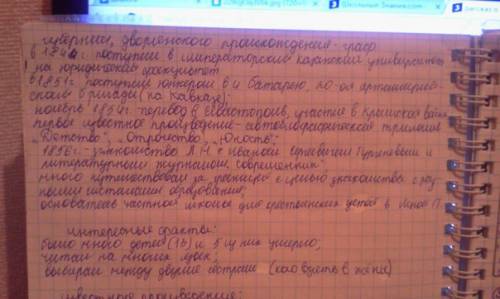 губернии, дворянского происхождения - граф
в 184 поступил в императорский казанский университет
на юридический факультет
в 1851г. поступил юнкером в 4 батарею, 20-ой артиллерийс
ской бригады (на Кавказе)
ноябрь 1854г. перевод в Севастополь, участие в Крымской войне
первое известное произведение - автобиографическая трилогия
"Детство", "Отрочество", "Юность";
1856г. знакомство Л.Н. с Иваном Сергеевичем Тургеневым и
литературным журналом "Современник"
много путешествовал за границей с целью знакомства с раз
ными системами образования;
основатель частной школы для крестьянских детей в Ясной П.
интересные факты:
было много детей (13) и 5 из них умерло;
читал на многих языках;
выбирал между двумя сестрами (кого взять в жены)
известные произведения: